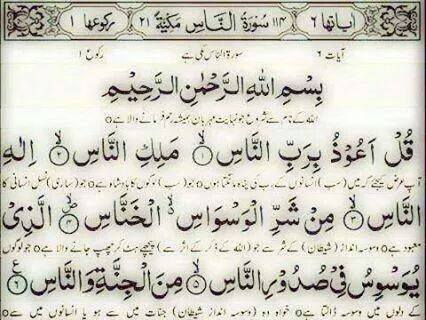 اٰیاتھا ٦ ١١٤ سُوْرَةُ النَّاسِ مَكِّيَّةٌ ٢١ رکوعھا ١
آیات ٦ سورۃ الناس مکی ہے رکوع ١
بِسْمِ اللهِ الرَّحْمٰنِ الرَّحِيْمِ
اللہ کے نام سے شروع جو نہایت مہربان ہمیشہ رحم فرمانے والا ہے ○
قُلْ اَعُوْذُ بِرَبِّ النَّاسِ ۙ﴿١﴾ مَلِكِ النَّاسِ ۙ﴿٢﴾ اِلٰهِ
آپ عرض کیجئے کہ میں (سب) انسانوں کے رب کی پناہ مانگتا ہوں ○ جو (سب) لوگوں کا بادشاہ ہے ○ جو (ساری) نسل انسانی کا
النَّاسِ ۙ﴿٣﴾ مِنْ شَرِّ الْوَسْوَاسِ ۙ الْخَنَّاسِ ۪ۙ﴿٤﴾ الَّذِيْ
معبود ہے ○ وسوسہ انداز (شیطان) کے شر سے جو (اللہ کے ذکر کے اثر سے) پیچھے ہٹ کر چھپ جانے والا ہے ○ جو لوگوں
يُوَسْوِسُ فِيْ صُدُوْرِ النَّاسِ ۙ﴿٥﴾ مِنَ الْجِنَّةِ وَ النَّاسِ ﴿٦﴾ ع
کے دلوں میں وسوسہ ڈالتا ہے ○ خواہ وہ (وسوسہ انداز شیطان) جنات میں سے ہو یا انسانوں میں سے ○